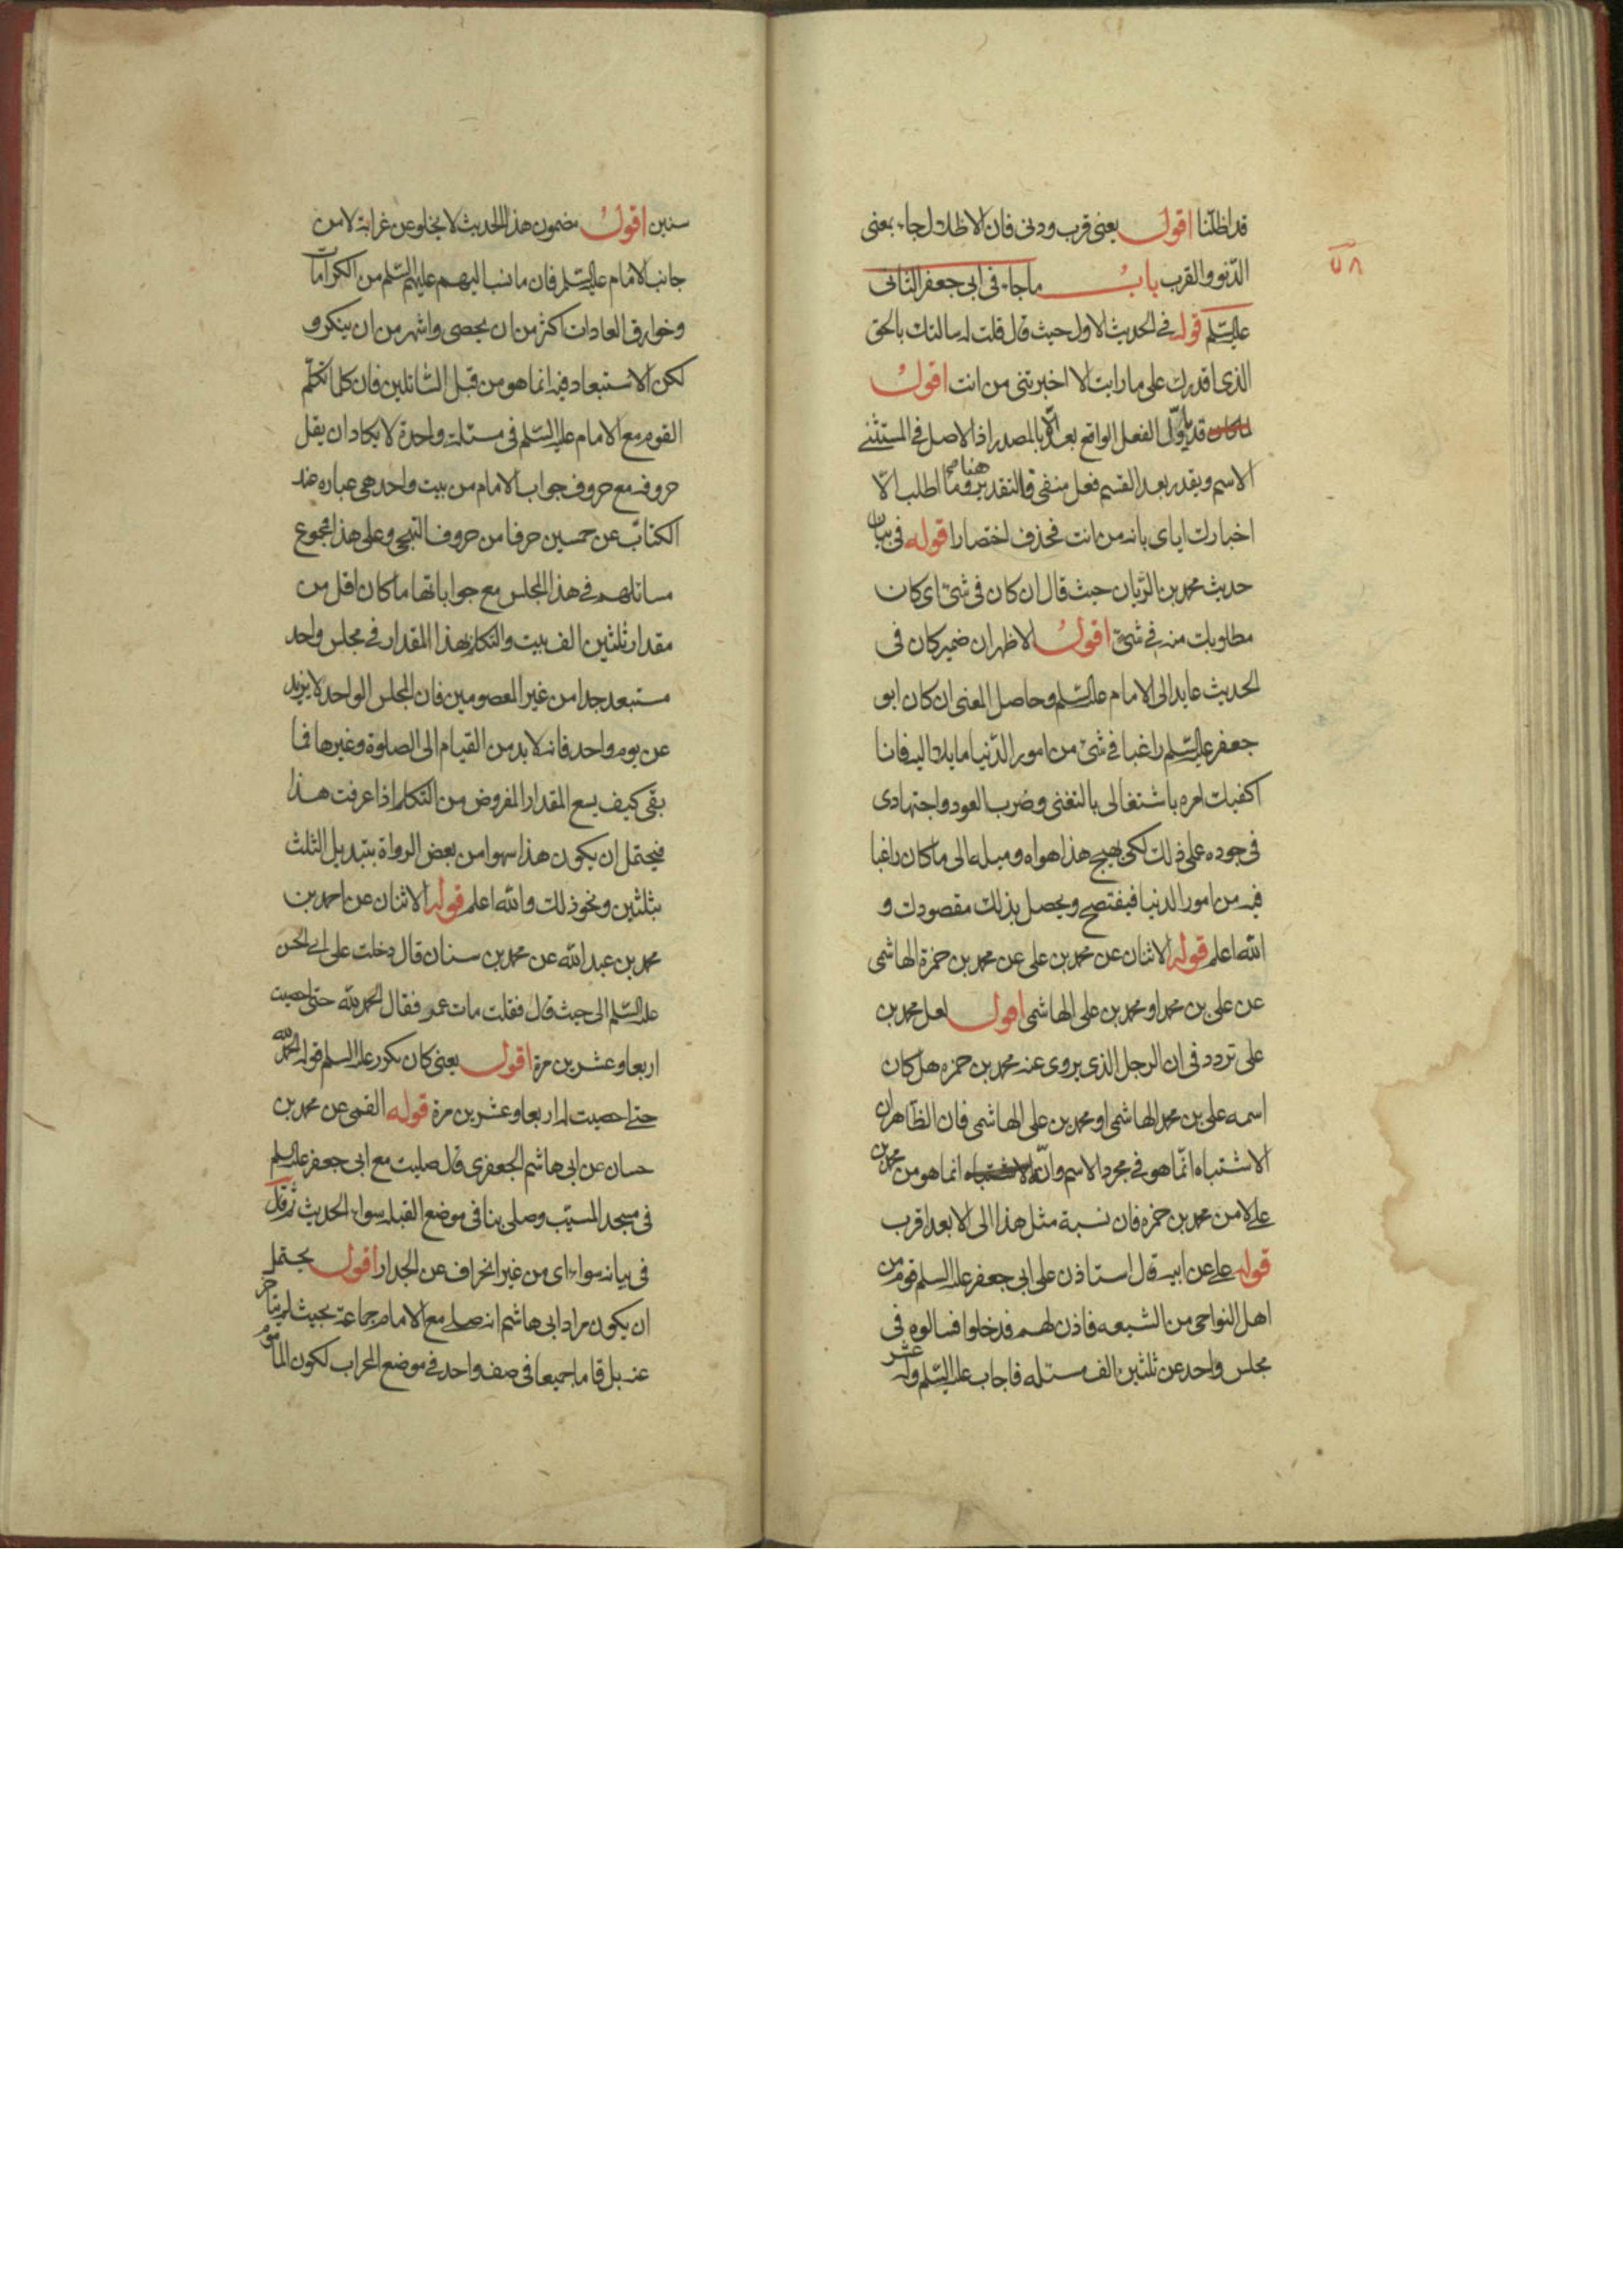 قد اظلّنا اقول يعنى قرب ودنى فان الاظلال جاء بمعنى
الدّنو والقرب باب ما جاء فى ابى جعفر الثانى
عليه السّلم قوله فى الحديث الاول حيث قال قلت له سالتك بالحق
الذى اقدرك على ما رايت الا اخبرتنى من انت اقول
قد يأوّل الفعل الواقع بعد الّا بالمصدر اذ الاصل فى المستثنى
الاسم ويقدر بعد القسم فعل منفى فالتقدير هنا وما اطلب الّا
اخبارك اياى بانه من انت فحذف اختصارا قوله فى بيان
حديث محمد بن الرّيان حيث قال ان كان فى شئ اى كان
مطلوبك منه فى شئ اقول الاظهر ان ضمير كان فى
الحديث عايد الى الامام عليه السّلم وحاصل المعنى ان كان ابو
جعفر عليه السّلم راغبا فى شئ من امور الدّنيا مايلا اليه فانا
اكفيك امره باشتغالى بالتغنى وضرب العود واجتهادى
فى جوده عملى ذلك لكى يهيج هذا هواه وميله الى ما كان راغبا
فيه من امور الدنيا فيفتضح ويحصل بذلك مقصودك و
الله اعلم قوله الاثنان عن محمد بن على عن محمد بن حمزة الهاشمى
عن على بن محمد او محمد بن على الهاشمى اقول لعل محمد بن
على تردد فى ان الرجل الذى يروى عنه محمد بن حمزه هل كان
اسمه على بن محمد الهاشمى او محمد بن على الهاشمى فان الظاهر ان
الاشتباه انّما هو فى مجرد الاسم وانّه انما هو من محمد بن
على لا من محمد بن حمزه فان نسبة مثل هذا الى الابعد اقرب
قوله على عن ابيه قال استاذن على ابى جعفر عليه السلم قوم من
اهل النواحى من الشيعه فاذن لهم فدخلوا فسالوه فى
مجلس واحد عن ثلثين الف مسئله فاجاب عليه السّلم وله عشر
سنين اقول مضمون هذا الحديث لا يخلو عن غرابة لا من
جانب الامام عليه السّلم فان ما نسب اليهم عليهم السّلم من الكرامات
وخوارق العادات اكثر من ان يحصى واشهر من ان ينكر و
لكن الاستبعاد فيه انما هو من قبل السّائلين فان كلما تكلّم
القوم مع الامام عليه السّلم فى مسئلة واحدة لا يكاد ان يقل
حروفه مع حروف جواب الامام من بيت واحد هى عباره عند
الكتّاب عن خمسين حرفا من حروف التهجى وعلى هذا فمجموع
مسائلهم فى هذا المجلس مع جواباتها ما كان اقل من
مقدار ثلثين الف بيت والتكلم بهذا المقدار فى مجلس واحد
مستبعد جدا من غير المعصومين فان المجلس الواحد لا يزيد
عن يوم واحد فانه لا بد من القيام الى الصلوة وغيرها فما
بقى كيف يسع المقدار المفروض من التكلم اذا عرفت هذا
فيحتمل ان يكون هذا سهوا من بعض الرواة بتبديل الثلث
بثلثين ونحو ذلك والله اعلم قوله الاثنان عن احمد بن
محمد بن عبد الله عن محمد بن سنان قال دخلت على ابى الحسن
عليه السّلم الى حيث قال فقلت مات عمر فقال الحمد لله حتى احصيت
اربعا وعشرين مرة اقول يعنى كان يكرر عليه السلم قوله الحمد لله
حتى احصيت له اربعا وعشرين مرة قوله القمى عن محمد بن
حسان عن ابى هاشم الجعفرى قال صليت مع ابى جعفر عليه السلم
فى مسجد المسيّب وصلى بنا فى موضع القبله سواء الحديث ثم قال
فى بيانه سواء اى من غير انحراف عن الجدار اقول يحتمل
ان يكون مراد ابى هاشم انه صلى مع الامام جماعة بحيث لم يتاخر
عنه بل قاما جميعا فى صف واحد فى موضع المحراب لكون الماموم